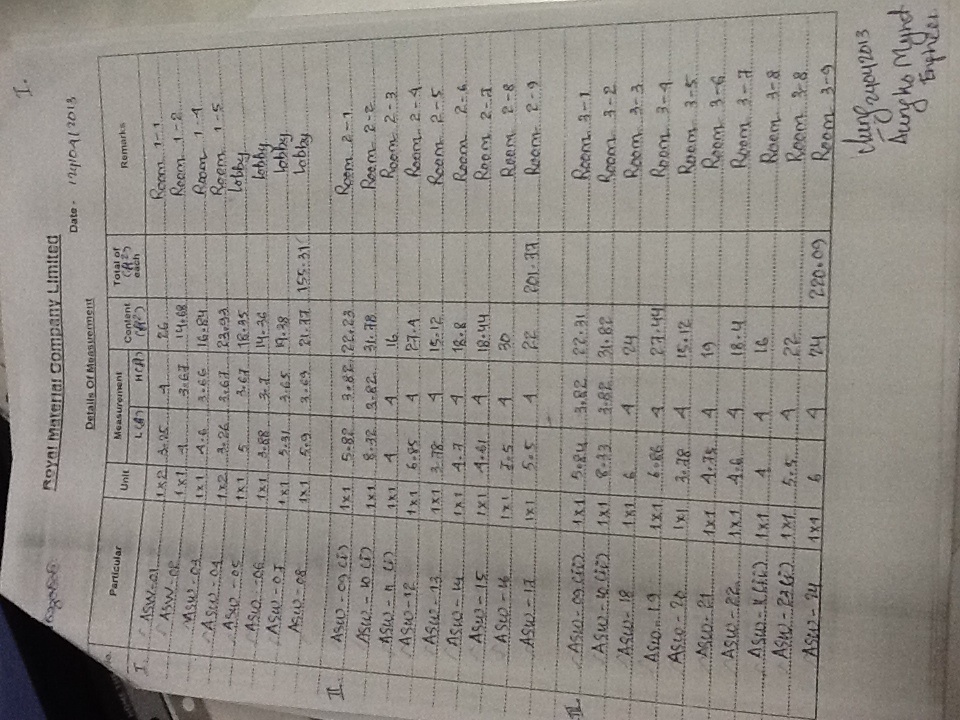 I.
Royal Material Company Limited
Date - 24/04/2013
Details Of Measurement
No. Particular Unit Measurement Content (ft2) Total of (ft2) each Remarks
L(ft) H(ft)
I. ASW-01 1x2 3.25 4 26 Room 1-1
ASW-02 1x1 4 3.67 14.68 Room 1-2
ASW-03 1x1 4.6 3.66 16.84 Room 1-4
ASW-04 1x2 3.26 3.67 23.93 Room 1-5
ASW-05 1x1 5 3.67 18.35 Lobby
ASW-06 1x1 3.88 3.7 14.36 Lobby
ASW-07 1x1 5.31 3.65 19.38 Lobby
ASW-08 1x1 5.9 3.69 21.77 155.31 Lobby
II. ASW-09(i) 1x1 5.82 3.82 22.23 Room 2-1
ASW-10(i) 1x1 8.32 3.82 31.78 Room 2-2
ASW-11(i) 1x1 4 4 16 Room 2-3
ASW-12 1x1 6.85 4 27.4 Room 2-4
ASW-13 1x1 3.78 4 15.12 Room 2-5
ASW-14 1x1 4.7 4 18.8 Room 2-6
ASW-15 1x1 4.61 4 18.44 Room 2-7
ASW-16 1x1 7.5 4 30 Room 2-8
ASW-17 1x1 5.5 4 22 201.77 Room 2-9
III. ASW-09(ii) 1x1 5.84 3.82 22.31 Room 3-1
ASW-10(ii) 1x1 8.33 3.82 31.82 Room 3-2
ASW-18 1x1 6 4 24 Room 3-3
ASW-19 1x1 6.86 4 27.44 Room 3-4
ASW-20 1x1 3.78 4 15.12 Room 3-5
ASW-21 1x1 4.75 4 19 Room 3-6
ASW-22 1x1 4.6 4 18.4 Room 3-7
ASW-11(ii) 1x1 4 4 16 Room 3-8
ASW-23(i) 1x1 5.5 4 22 Room 3-8
ASW-24 1x1 6 4 24 220.09 Room 3-9
24042013
Aungko Mynt
Engineer